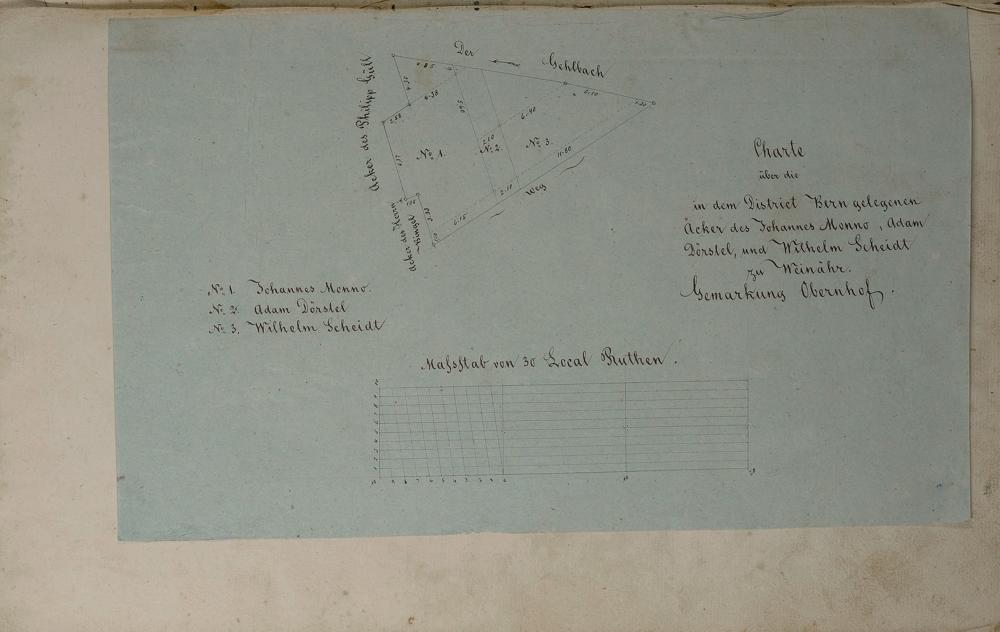 Der Gehlbach
Äcker des Philipp Güll
4.38
2.58
N° 1.
N° 2.
N° 3.
6.40
6.10
11.80
2.10
2.10
6.15
Weg
Äcker des Herrn
Charte
über die
in dem District Bern gelegenen
Äcker des Johannes Monno, Adam
Dörstel, und Wilhelm Scheidt
zu Weinähr.
Gemarkung Obernhof.
N° 1. Johannes Monno.
N° 2. Adam Dörstel
N° 3. Wilhelm Scheidt
Maßstab von 30 Local Ruthen.